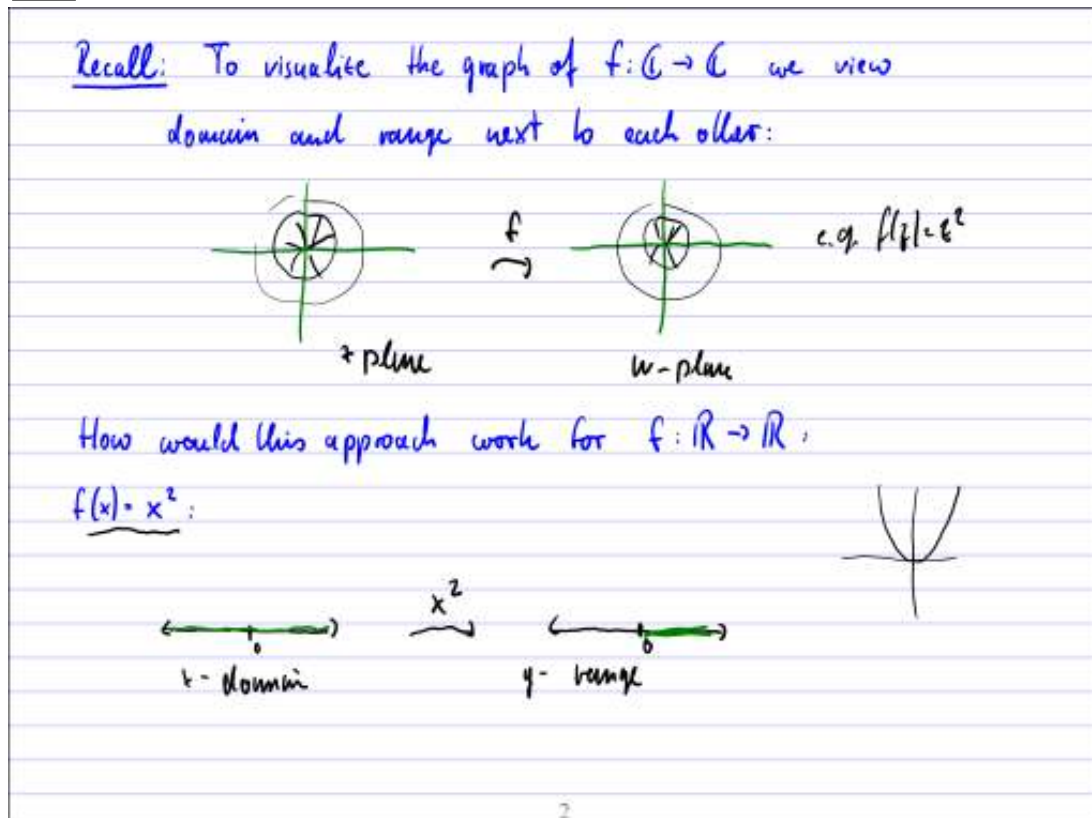 Recall: To visualize the graph of f: ℂ → ℂ we view
domain and range next to each other:
f
e.g. f(z)=z²
z plane
w-plane
How would this approach work for f: ℝ → ℝ:
f(x) = x²:
x²
0
0
x-domain
y-range
2